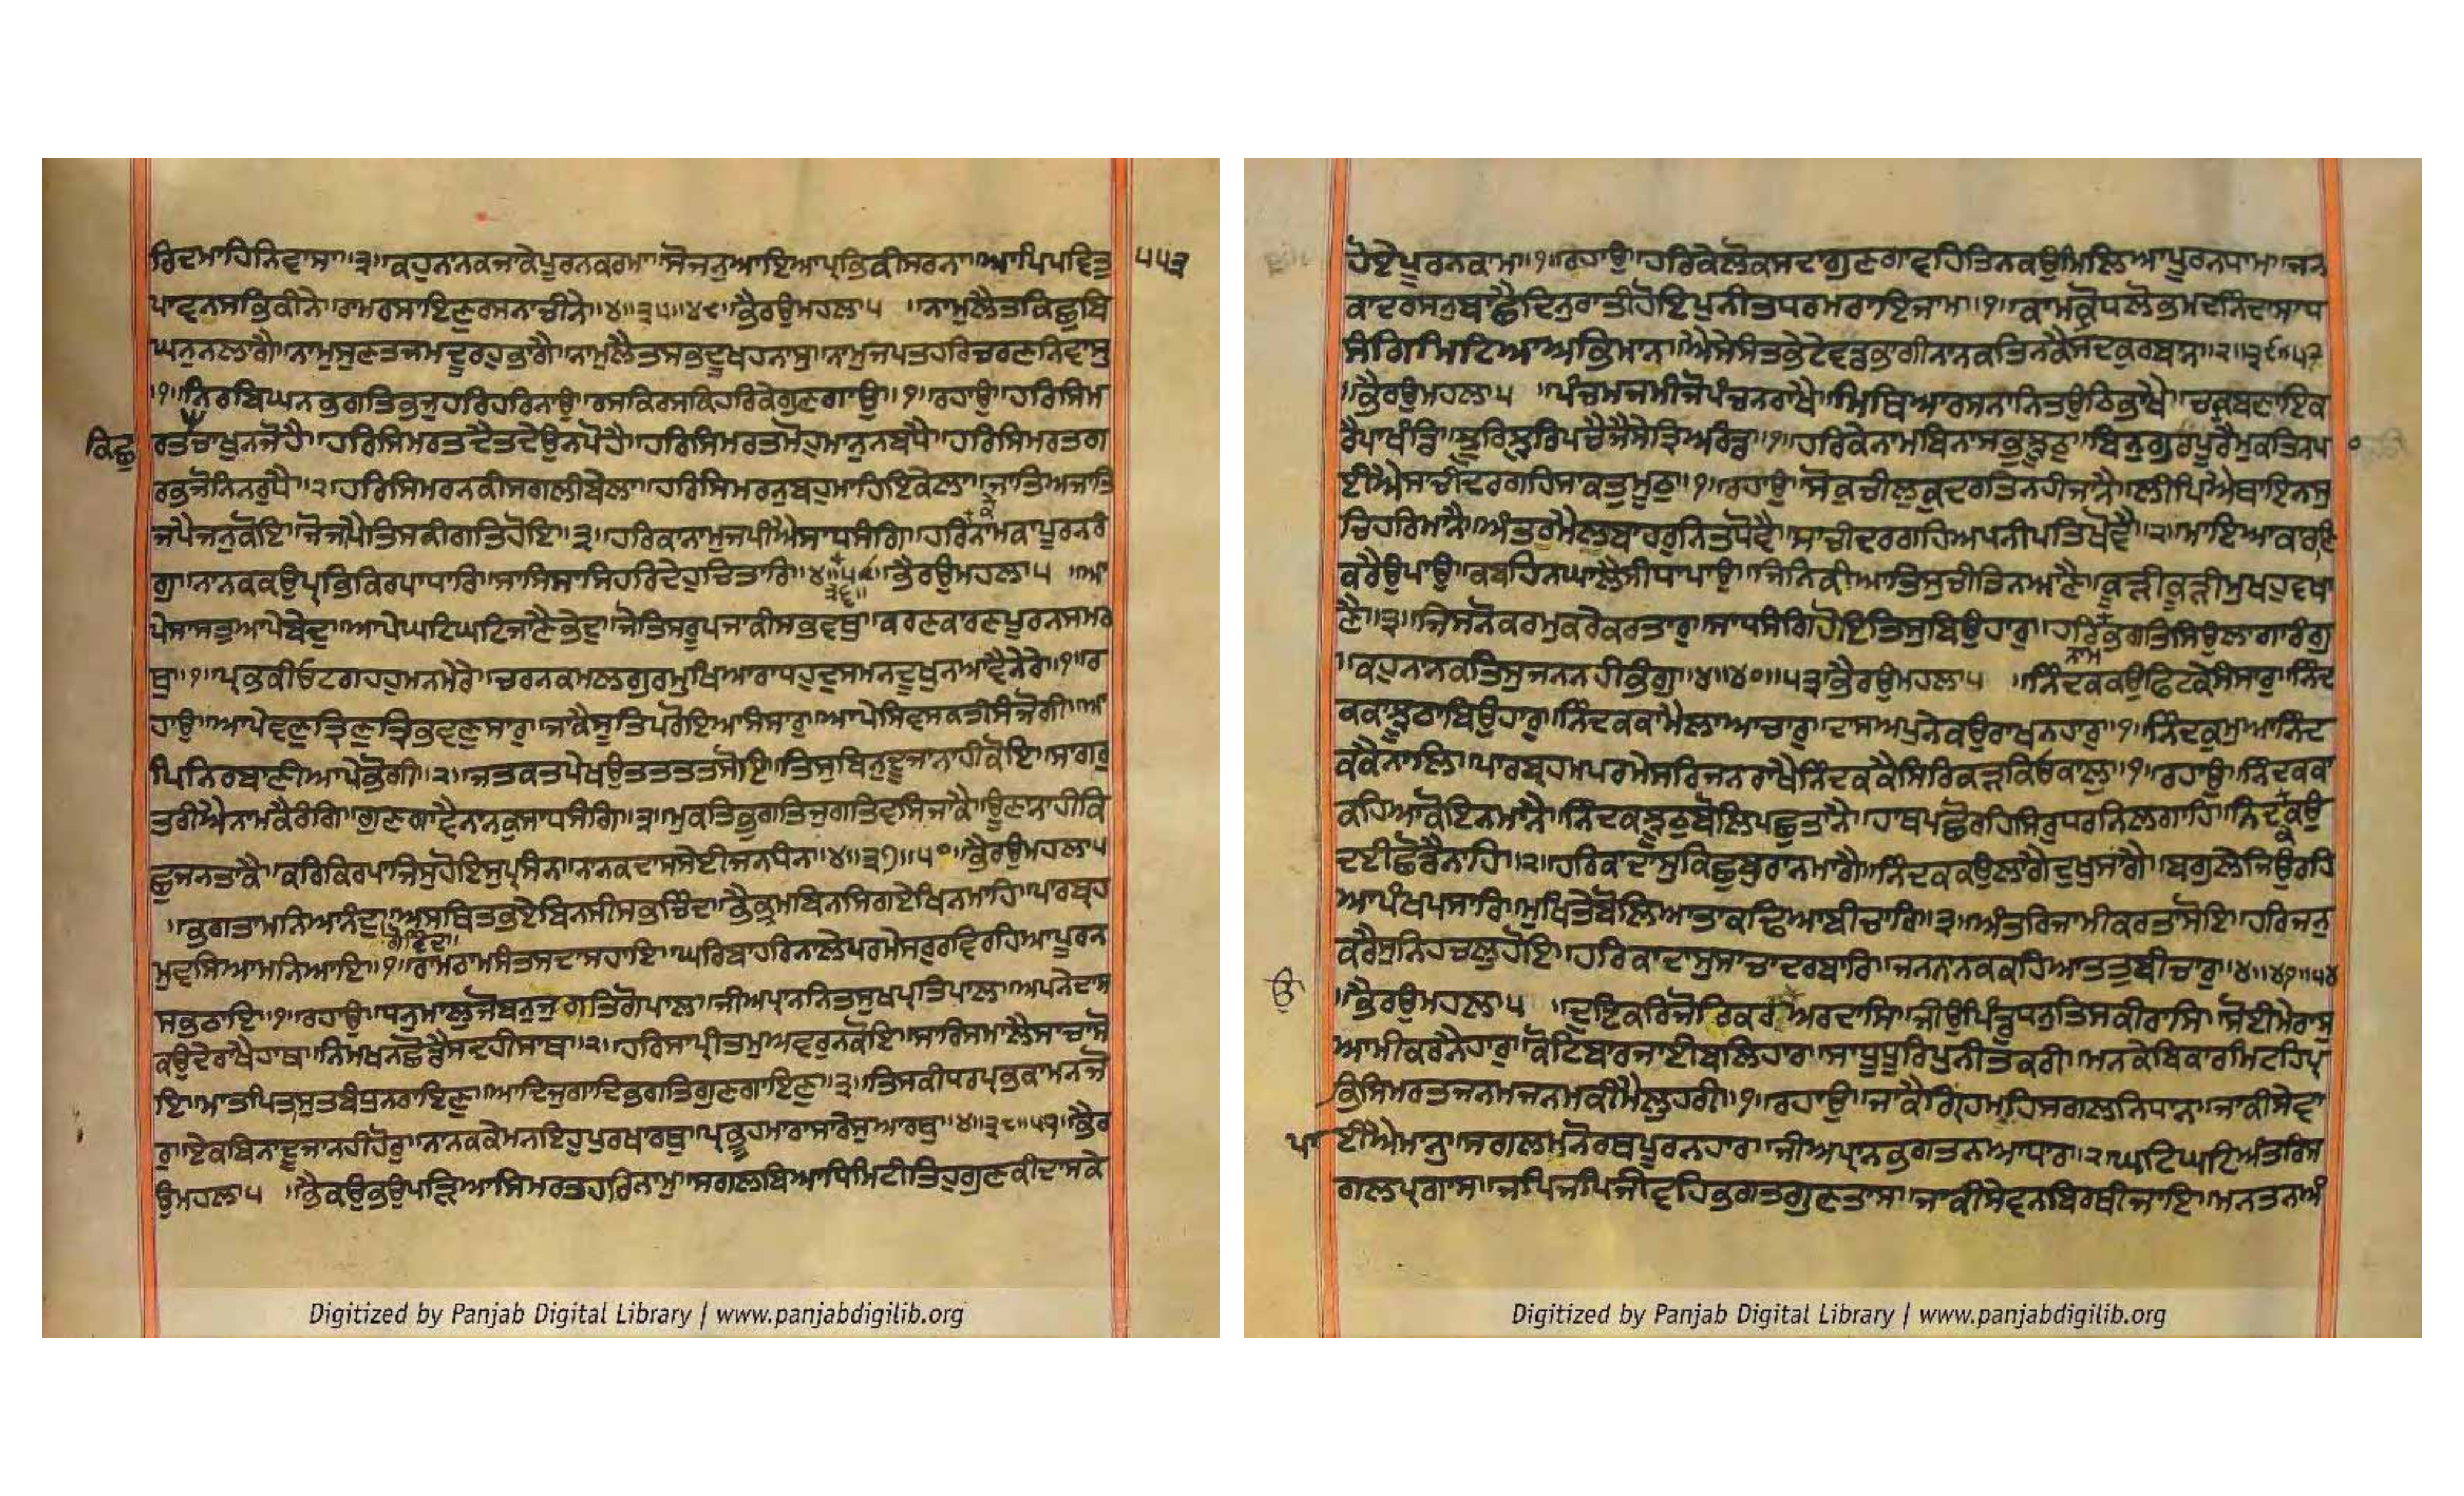 ਰਿਦਮਾਹਿਨਿਵਾਸਾ॥੩॥ਕਹੁਨਾਨਕਜਾਕੇਪੂਰਨਕਰਮਾ॥ਸੋਜਨੁਆਇਆਪ੍ਰਭਿਕੀਸਰਨਾ॥ਆਪਿਪਵਿਤੁ ੫੫੩
ਪਾਵਨਸਭਿਕੀਨੇ॥ਰਾਮਰਸਾਇਣੁਰਸਨਾਚੀਨੇ॥੪॥੩੫॥੪੮॥ਭੈਰਉਮਹਲਾ੫ ॥ਨਾਮੁਲੈਤਕਿਛੁਬਿ
ਘਨੁਨਲਾਗੈ॥ਨਾਮੁਸੁਣਤਜਮਦੂਰਹੁਭਾਗੈ॥ਨਾਮੁਲੈਤਸਭਦੂਖਹਨਾਸੁ॥ਨਾਮੁਜਪਤਹਰਿਚਰਣਨਿਵਾਸੁ
॥੧॥ਨਿਰਬਿਘਨਭਗਤਿਭਜੁਹਰਿਹਰਿਨਾਉ॥ਰਸਕਿਰਸਕਿਹਰਿਕੇਗੁਣਗਾਉ॥੧॥ਰਹਾਉ॥ਹਰਿਸਿਮ
ਕਿਛੁ ਰਤਚਾਖੁਨਜੋਹੈ॥ਹਰਿਸਿਮਰਤਦੈਤਦੇਉਨਪੋਹੈ॥ਹਰਿਸਿਮਰਤਮੋਹੁਮਾਨੁਨਬਧੈ॥ਹਰਿਸਿਮਰਤਗ
ਰਭਜੋਨਿਨਰੁਧੈ॥੨॥ਹਰਿਸਿਮਰਨਕੀਸਗਲੀਬੇਲਾ॥ਹਰਿਸਿਮਰਨੁਬਹੁਮਾਹਿਇਕੇਲਾ॥ਜਾਤਿਅਜਾਤਿ
ਜਪੈਜਨੁਕੋਇ॥ਜੋਜਾਪੈਤਿਸਕੀਗਤਿਹੋਇ॥੩॥ਹਰਿਕਾਨਾਮੁਜਪੀਐਸਾਧਸੰਗਿ॥ਹਰਿਨਾਮਕਾਪੂਰਨਰੰ
ਗੁ॥ਨਾਨਕਕਉਪ੍ਰਭਿਕਿਰਪਾਧਾਰਿ॥ਸਾਸਿਸਾਸਿਹਰਿਦੇਹੁਚਿਤਾਰਿ॥੪॥੩੬॥੪੯॥ਭੈਰਉਮਹਲਾ੫ ॥ਆ
ਪੇਸਾਸਤੁਆਪੇਬੇਦੁ॥ਆਪੇਘਟਿਘਟਿਜਾਣੈਭੇਦੁ॥ਜੋਤਿਸਰੂਪਜਾਕੀਸਭਵਥੁ॥ਕਰਣਕਾਰਣਪੂਰਨਸਮਰ
ਥੁ॥੧॥ਪ੍ਰਭਕੀਓਟਗਹਹੁਮਨਮੇਰੇ॥ਚਰਨਕਮਲਗੁਰਮੁਖਿਆਰਾਧਹੁਦੁਸਮਨਦੂਖੁਨਆਵੈਨੇਰੇ॥੧॥ਰ
ਹਾਉ॥ਆਪੇਵਣੁਤ੍ਰਿਣੁਤ੍ਰਿਭਵਣੁਸਾਰੁ॥ਜਾਕੈਸੂਤਿਪਰੋਇਆਸੰਸਾਰੁ॥ਆਪੇਸਿਵਸਕਤੀਸੰਜੋਗੀ॥ਆ
ਪਿਨਿਰਬਾਣੀਆਪੇਭੋਗੀ॥੨॥ਜਤਕਤਪੇਖਉਤਤਤਤਸੋਇ॥ਤਿਸੁਬਿਨੁਦੂਜਾਨਾਹੀਕੋਇ॥ਸਾਗਰੁ
ਤਰੀਐਨਾਮਕੈਰੰਗਿ॥ਗੁਣਗਾਵੈਨਾਨਕੁਸਾਧਸੰਗਿ॥੩॥ਮੁਕਤਿਭੁਗਤਿਜੁਗਤਿਵਸਿਜਾਕੈ॥ਊਣਾਨਾਹੀਕਿ
ਛੁਜਨਤਾਕੈ॥ਕਰਿਕਿਰਪਾਜਿਸੁਹੋਇਸੁਪ੍ਰਸੰਨਾ॥ਨਾਨਕਦਾਸਸੇਈਜਨਧੰਨਾ॥੪॥੩੭॥੫੦॥ਭੈਰਉਮਹਲਾ੫
॥ਭਗਤਾਮਨਿਆਨੰਦੁਗੋਬਿੰਦਾ॥ਅਸਥਿਤਭਏਬਿਨਸੀਸਭਚਿੰਦਾ॥ਭੈਭ੍ਰਮਬਿਨਸਿਗਏਖਿਨਮਾਹਿ॥ਪਾਰਬ੍ਰਹ
ਮੁਵਸਿਆਮਨਿਆਇ॥੧॥ਰਾਮਰਾਮਸੰਤਸਦਾਸਹਾਇ॥ਘਰਿਬਾਹਰਿਨਾਲੇਪਰਮੇਸਰੁਰਵਿਰਹਿਆਪੂਰਨ
ਸਭਠਾਇ॥੧॥ਰਹਾਉ॥ਧਨੁਮਾਲੁਜੋਬਨੁਜੁਗਤਿਗੋਪਾਲ॥ਜੀਅਪ੍ਰਾਨਨਿਤਸੁਖਪ੍ਰਤਿਪਾਲ॥ਅਪਨੇਦਾਸ
ਕਉਦੇਰਾਖੈਹਾਥ॥ਨਿਮਖਨਛੋਡੈਸਦਹੀਸਾਥ॥੨॥ਹਰਿਸਾਪ੍ਰੀਤਮੁਅਵਰੁਨਕੋਇ॥ਸਾਰਿਸਮਾਲੈਸਾਚਾਸੋ
ਇ॥ਮਾਤਪਿਤਸੁਤਬੰਧੁਨਰਾਇਣੁ॥ਆਦਿਜੁਗਾਦਿਭਗਤਿਗੁਣਗਾਇਣੁ॥੩॥ਤਿਸਕੀਧਰਪ੍ਰਭਕਾਮਨਜੋ
ਰੁ॥ਏਕਬਿਨਾਦੂਜਾਨਹੀਹੋਰੁ॥ਨਾਨਕਕੇਮਨਇਹੁਪੁਰਖਾਰਥੁ॥ਪ੍ਰਭੂਹਮਾਰਾਸਾਰੇਸੁਆਰਥੁ॥੪॥੩੮॥੫੧॥ਭੈਰ
ਉਮਹਲਾ੫ ॥ਭੈਕਉਭਉਪੜਿਆਸਿਮਰਤਹਰਿਨਾਮ॥ਸਗਲਬਿਆਧਿਮਿਟੀਤਿਹੁਗੁਣਕੀਦਾਸਕੇ
ਹੋਏਪੂਰਨਕਾਮਾ॥੧॥ਰਹਾਉ॥ਹਰਿਕੇਲੋਕਸਦਾਗੁਣਗਾਵਹਿਤਿਨਕਉਮਿਲਿਆਪੂਰਨਧਾਮਾ॥ਜਨ
ਕਾਦਰਸਨੁਬਾਛੈਦਿਨੁਰਾਤੀਹੋਇਪੁਨੀਤਧਰਮਰਾਇਜਾਮਾ॥੧॥ਕਾਮਕ੍ਰੋਧਲੋਭਮਦਨਿੰਦਾਸਾਧ
ਸੰਗਿਮਿਟਿਆਅਭਿਮਾਨ॥ਐਸੇਸੰਤਭੇਟੇਵਡਭਾਗੀਨਾਨਕਤਿਨਕੈਸਦਕੁਰਬਾਨ॥੨॥੩੯॥੫੨
॥ਭੈਰਉਮਹਲਾ੫ ॥ਪੰਚਮਜਮੀਜੋਪੰਚਨਰਾਖੈ॥ਮਿਥਿਆਰਸਨਾਨਿਤਉਠਿਭਾਖੈ॥ਚਕ੍ਰਬਣਾਇਕ
ਰੈਪਾਖੰਡ॥ਝੁਰਿਝੁਰਿਪਚੈਜੈਸੇਤ੍ਰਿਅਰੰਡ॥੧॥ਹਰਿਕੇਨਾਮਬਿਨਾਸਭਝੂਠੁ॥ਬਿਨੁਗੁਰਪੂਰੇਮੁਕਤਿਨਪਾ
ਈਐਸਾਚੀਦਰਗਹਿਸਾਕਤਮੂਠੁ॥੧॥ਰਹਾਉ॥ਸੋਕੁਚੀਲੁਕੁਦਰਤਿਨਹੀਜਾਨੈ॥ਲੀਪਿਐਥਾਇਨਸੁ
ਚਿਹਰਿਮਾਨੈ॥ਅੰਤਰੁਮੈਲਾਬਾਹਰੁਨਿਤਧੋਵੈ॥ਸਾਚੀਦਰਗਹਿਅਪਨੀਪਤਿਖੋਵੈ॥੨॥ਮਾਇਆਕਾਰਣਿ
ਕਰੈਉਪਾਉ॥ਕਬਹਿਨਘਾਲੈਸੀਧਾਪਾਉ॥ਜਿਨਿਕੀਆਤਿਸੁਚੀਤਿਨਆਣੈ॥ਕੂੜੀਕੂੜੀਮੁਖਹੁਵਖਾ
ਣੈ॥੩॥ਜਿਸਨੋਕਰਮੁਕਰੇਕਰਤਾਰੁ॥ਸਾਧਸੰਗਿਹੋਇਤਿਸੁਬਿਉਹਾਰੁ॥ਹਰਿਨਾਮਭਗਤਿਸਿਉਲਾਗਾਰੰਗੁ
॥ਕਹੁਨਾਨਕਤਿਸੁਜਨਨਹੀਭੰਗੁ॥੪॥੪੦॥੫੩॥ਭੈਰਉਮਹਲਾ੫ ॥ਨਿੰਦਕਕਉਫਿਟਕੇਸੰਸਾਰੁ॥ਨਿੰਦ
ਕਕਾਝੂਠਾਬਿਉਹਾਰੁ॥ਨਿੰਦਕਕਾਮੈਲਾਆਚਾਰੁ॥ਦਾਸਅਪੁਨੇਕਉਰਾਖਨਹਾਰੁ॥੧॥ਨਿੰਦਕੁਮੁਆਨਿੰਦ
ਕਕੈਨਾਲਿ॥ਪਾਰਬ੍ਰਹਮਪਰਮੇਸਰਿਜਨਰਾਖੇਨਿੰਦਕਕੈਸਿਰਿਕੜਕਿਓਕਾਲੁ॥੧॥ਰਹਾਉ॥ਨਿੰਦਕਕਾ
ਕਹਿਆਕੋਇਨਮਾਨੈ॥ਨਿੰਦਕਝੂਠੁਬੋਲਿਪਛੁਤਾਨੇ॥ਹਾਥਪਛੋਰਹਿਸਿਰੁਧਰਨਿਲਗਾਹਿ॥ਨਿੰਦਕਕਉ
ਦਈਛੋਡੈਨਾਹਿ॥੨॥ਹਰਿਕਾਦਾਸੁਕਿਛੁਬੁਰਾਨਮਾਗੈ॥ਨਿੰਦਕਕਉਲਾਗੈਦੁਖਸਾਂਗੈ॥ਬਗੁਲੇਜਿਉਰਹਿ
ਆਪੰਖਪਸਾਰਿ॥ਮੁਖਤੇਬੋਲਿਆਤਾਕਢਿਆਬੀਚਾਰਿ॥੩॥ਅੰਤਰਿਜਾਮੀਕਰਤਾਸੋਇ॥ਹਰਿਜਨੁ
ਕਰੈਸੁਨਿਹਚਲੁਹੋਇ॥ਹਰਿਕਾਦਾਸੁਸਾਚਾਦਰਬਾਰਿ॥ਜਨਨਾਨਕਕਹਿਆਤਤੁਬੀਚਾਰੁ॥੪॥੪੧॥੫੪
॥ਭੈਰਉਮਹਲਾ੫ ॥ਦੁਇਕਰਿਜੋਰਿਕਰਉਅਰਦਾਸਿ॥ਜੀਉਪਿੰਡੁਧਨੁਤਿਸਕੀਰਾਸਿ॥ਸੋਈਮੇਰਾਸੁ
ਆਮੀਕਰਨੈਹਾਰੁ॥ਕੋਟਿਬਾਰਜਾਈਬਲਿਹਾਰ॥ਸਾਧੂਧੂਰਿਪੁਨੀਤਕਰੀ॥ਮਨਕੇਬਿਕਾਰਮਿਟਹਿਪ੍ਰ
ਭਸਿਮਰਤਜਨਮਜਨਮਕੀਮੈਲੁਹਰੀ॥੧॥ਰਹਾਉ॥ਜਾਕੈਗ੍ਰਿਹਮਹਿਸਗਲਨਿਧਾਨ॥ਜਾਕੀਸੇਵਾ
ਪਾ ਈਐਮਾਨੁ॥ਸਗਲਮਨੋਰਥਪੂਰਨਹਾਰ॥ਜੀਅਪ੍ਰਾਨਭਗਤਨਆਧਾਰ॥੨॥ਘਟਿਘਟਿਅੰਤਰਿਸ
ਗਲਪ੍ਰਗਾਸ॥ਜਪਿਜਪਿਜੀਵਹਿਭਗਤਗੁਣਤਾਸ॥ਜਾਕੀਸੇਵਨਬਿਰਥੀਜਾਇ॥ਮਨਤਨਅੰ
Digitized by Panjab Digital Library | www.panjabdigilib.org
Digitized by Panjab Digital Library | www.panjabdigilib.org